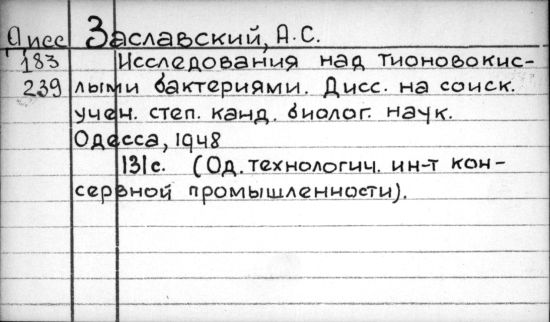 Дисс Заславский, А.С.
183 Исследования над тионовокис-
239 лыми бактериями. Дисс. на соиск.
учен. степ. канд. биолог. наук.
Одесса, 1948
131с. (Од. технологич. ин-т кон-
сервной промышленности).